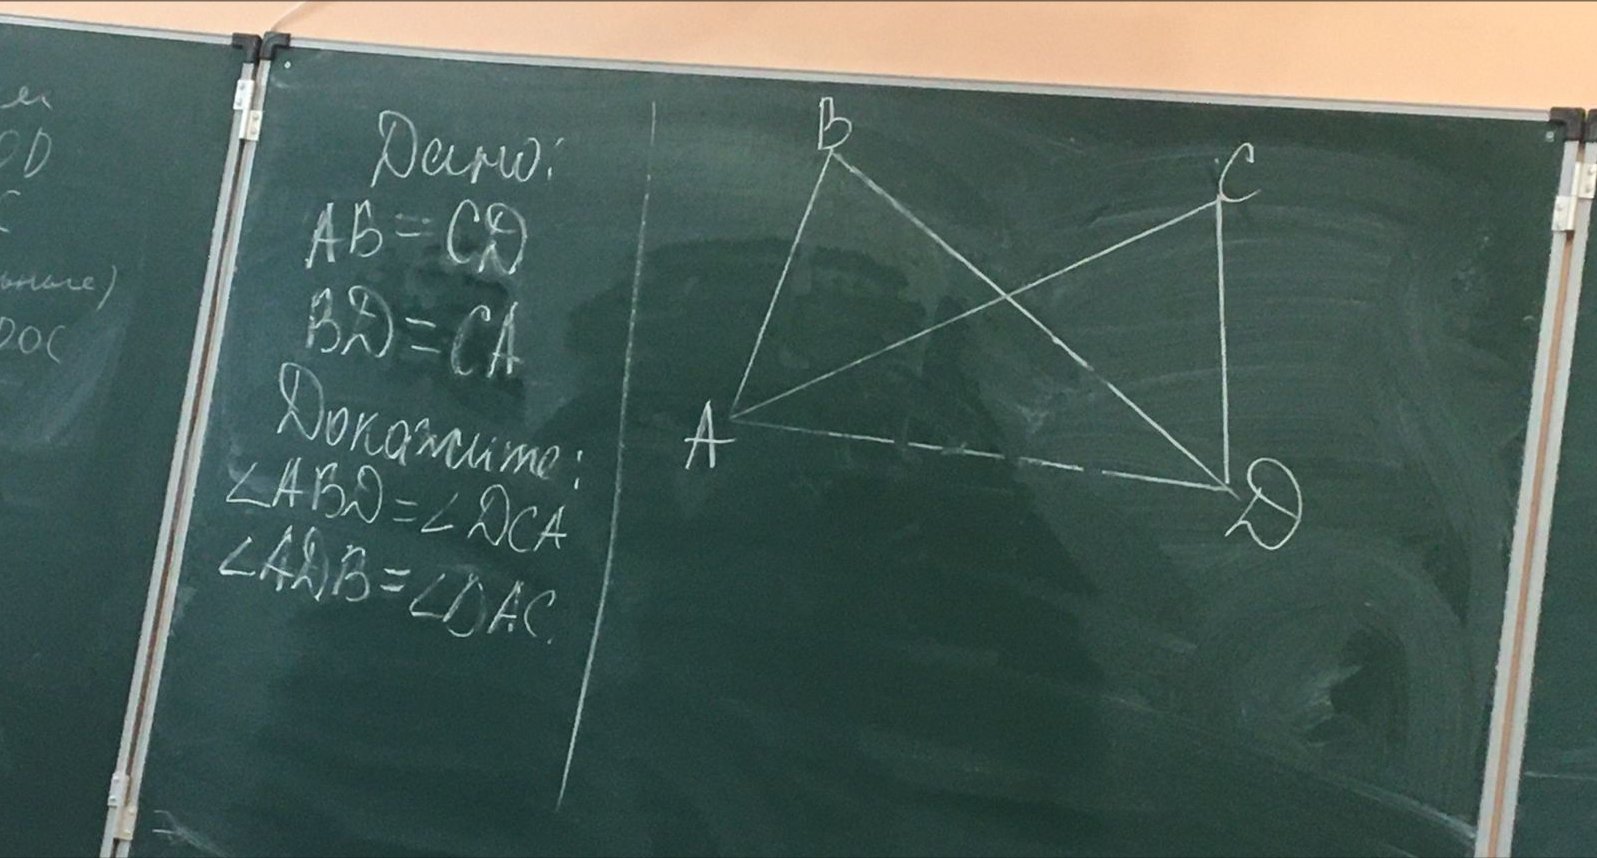 OD
DOC
Дано:
AB = CD
BD = CA
Докажите:
∠ABD = ∠DCA
∠ADB = ∠DAC.
B
C
A
D